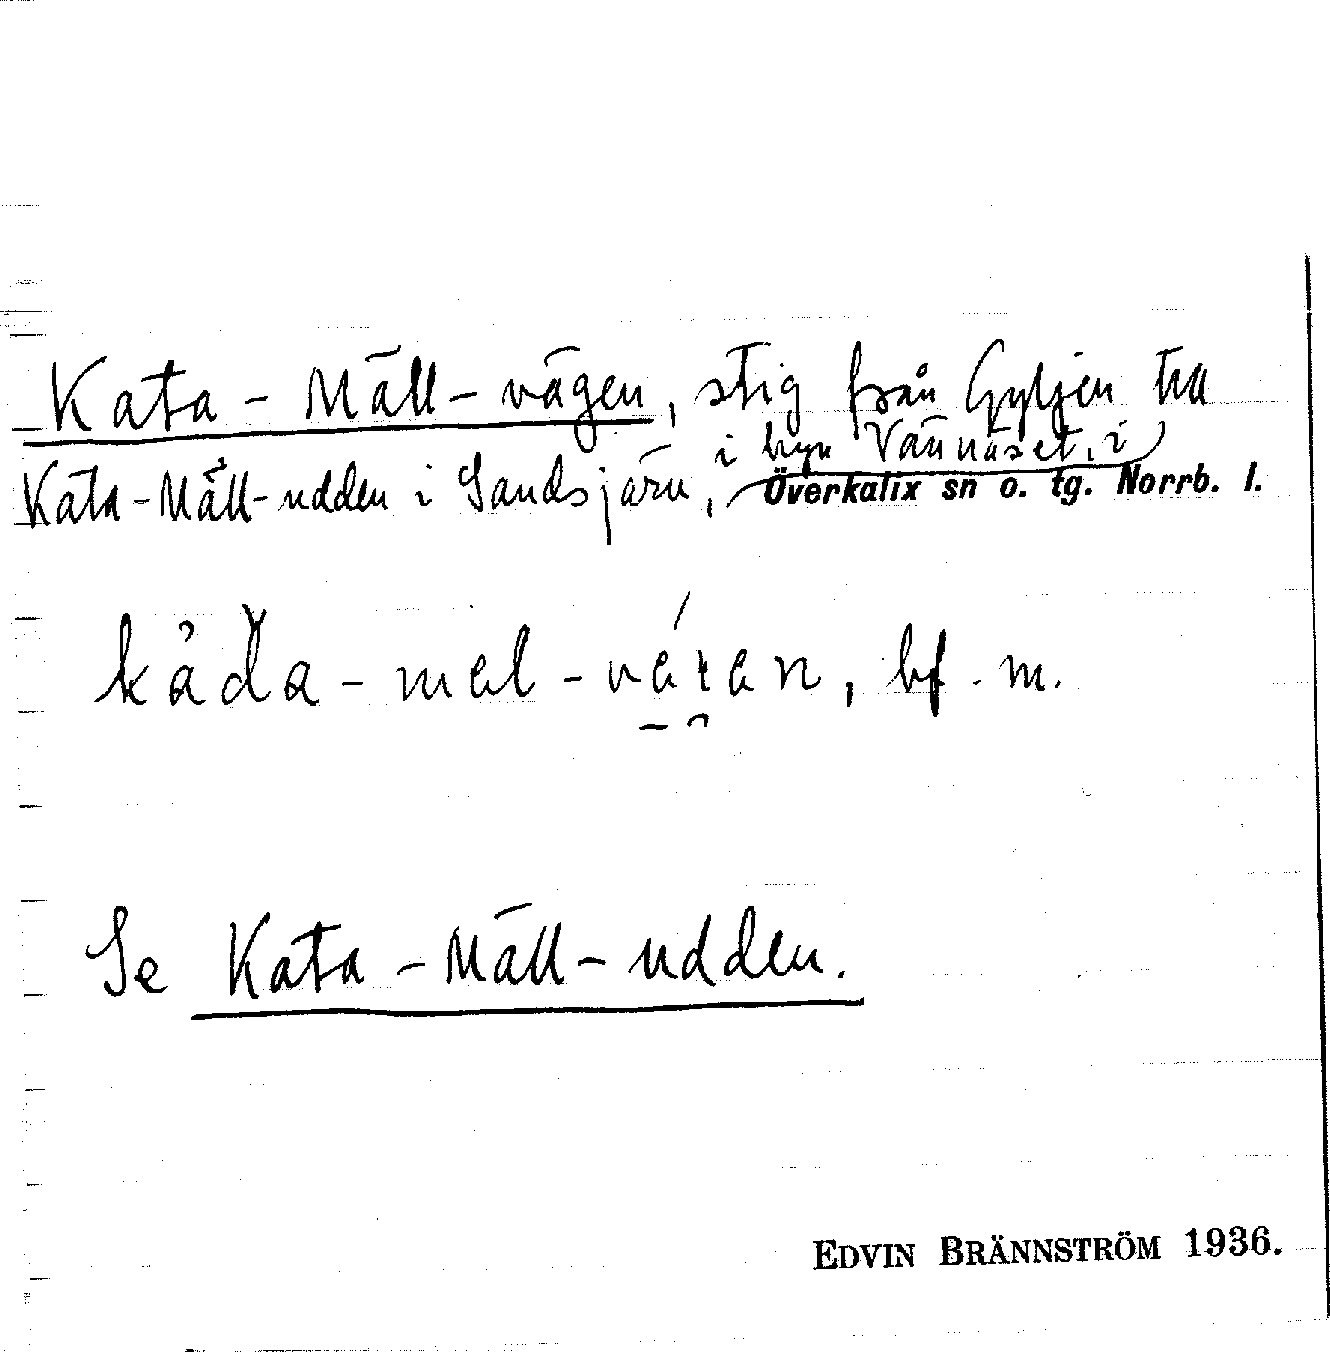 Kata-Mäll-vägen, stig från Gyljen till
Kata-Mäll-udden i Sandsjärv, i byn Vännäset, i Överkalix sn o. tg. Norrb. l.
bf. m.
Se Kata-Mäll-udden.
EDVIN BRÄNNSTRÖM 1936.